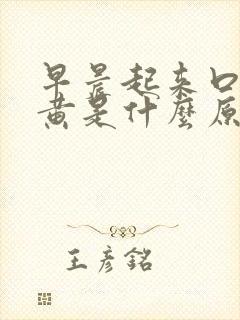 早晨起来口
黄是什麼原
王彦銘